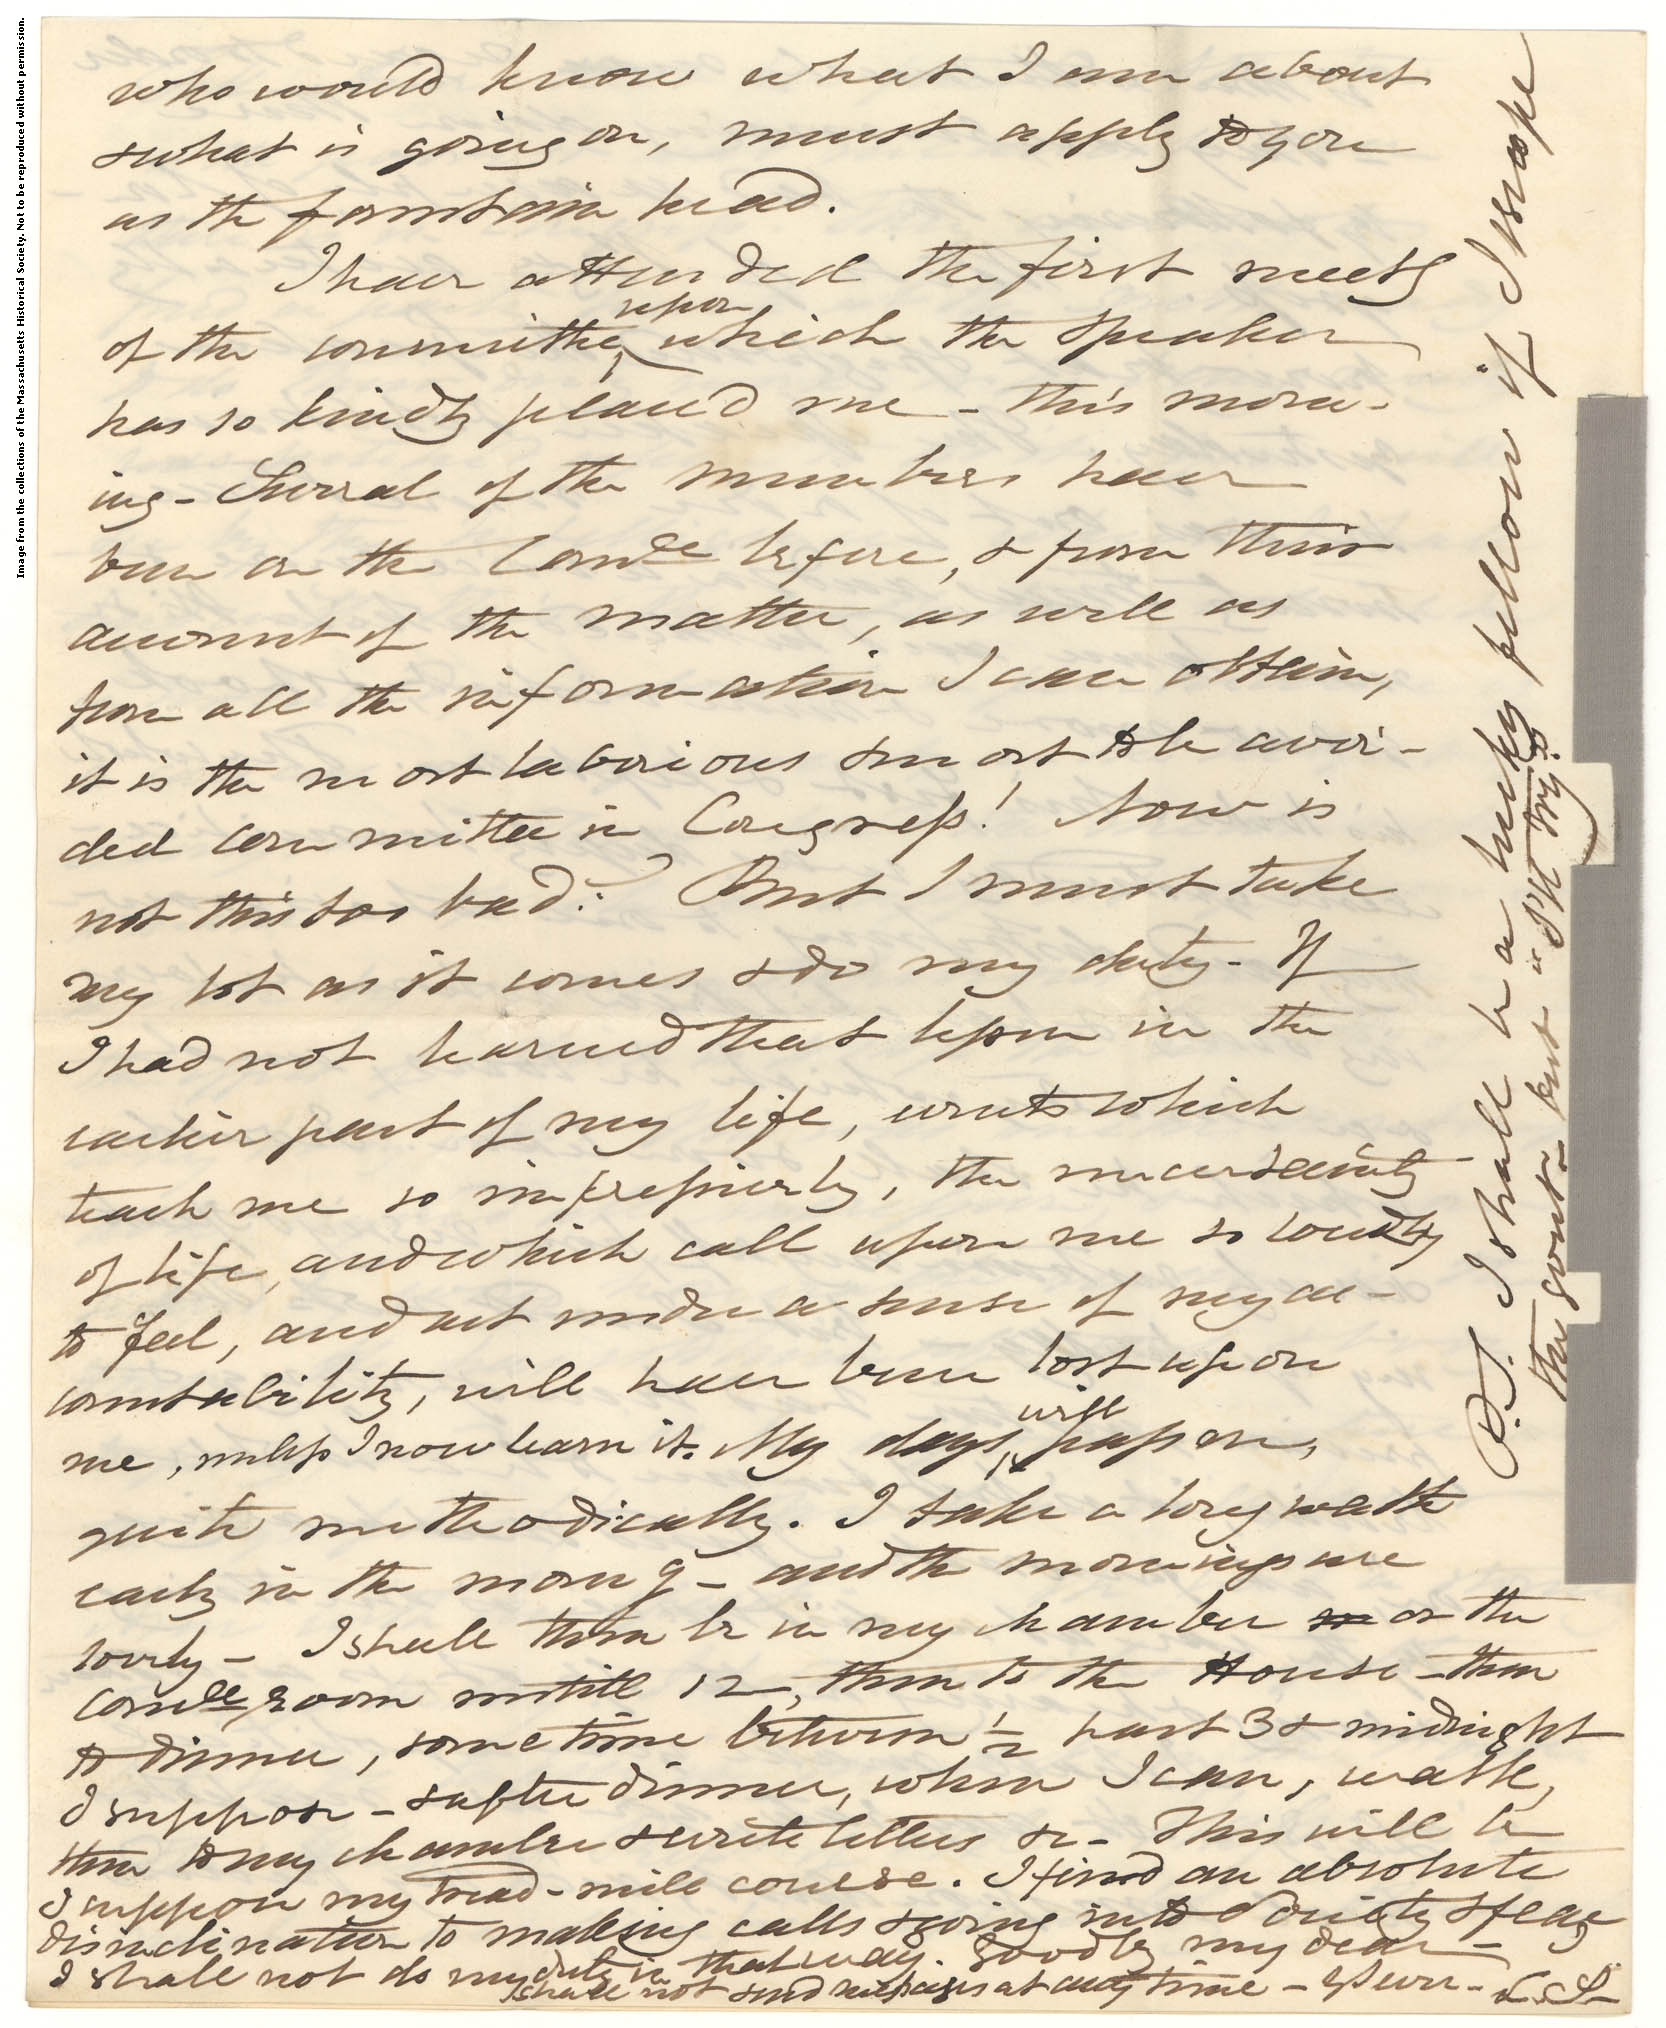 who would know what I am about
& what is going on, must apply to you
as the fountain head.
I have attended the first meetg
of the committee, upon which the Speaker
has so kindly placed me - this morn-
ing - Several of the members have
been on the Comee before, & from their
account of the matter, as well as
from all the information I can obtain,
it is the most laborious & most to be avoi-
ded committee in Congress! Now is
not this too bad? But I must take
my lot as it comes & do my duty - If
I had not learned that lesson in the
earlier part of my life, events which
teach me so impressively, the uncertainty
of life, and which call upon me so loudly
to feel, and act under a sense of my ac-
countability, will have been lost upon
me, unless I now learn it. My days, will pass on,
quite methodically. I take a long walk
early in the morng - and the mornings are
lovely - I shall then be in my chamber or the
Comee room untill 12, then to the House - then
to dinner, some time between 1/2 past 3 & midnight
I suppose - & after dinner, when I can, walk,
then to my chamber & write letters &c - This will be
I suppose my tread-mill course. I find an absolute
disinclination to making calls & going into Society & fear
I shall not do my duty in that way. Goodby my dear -
I shall not send messages at any time - Yr
P.S. I shall be a lucky fellow if I escape
the gout - but "I'll try."
Image from the collections of the Massachusetts Historical Society. Not to be reproduced without permission.